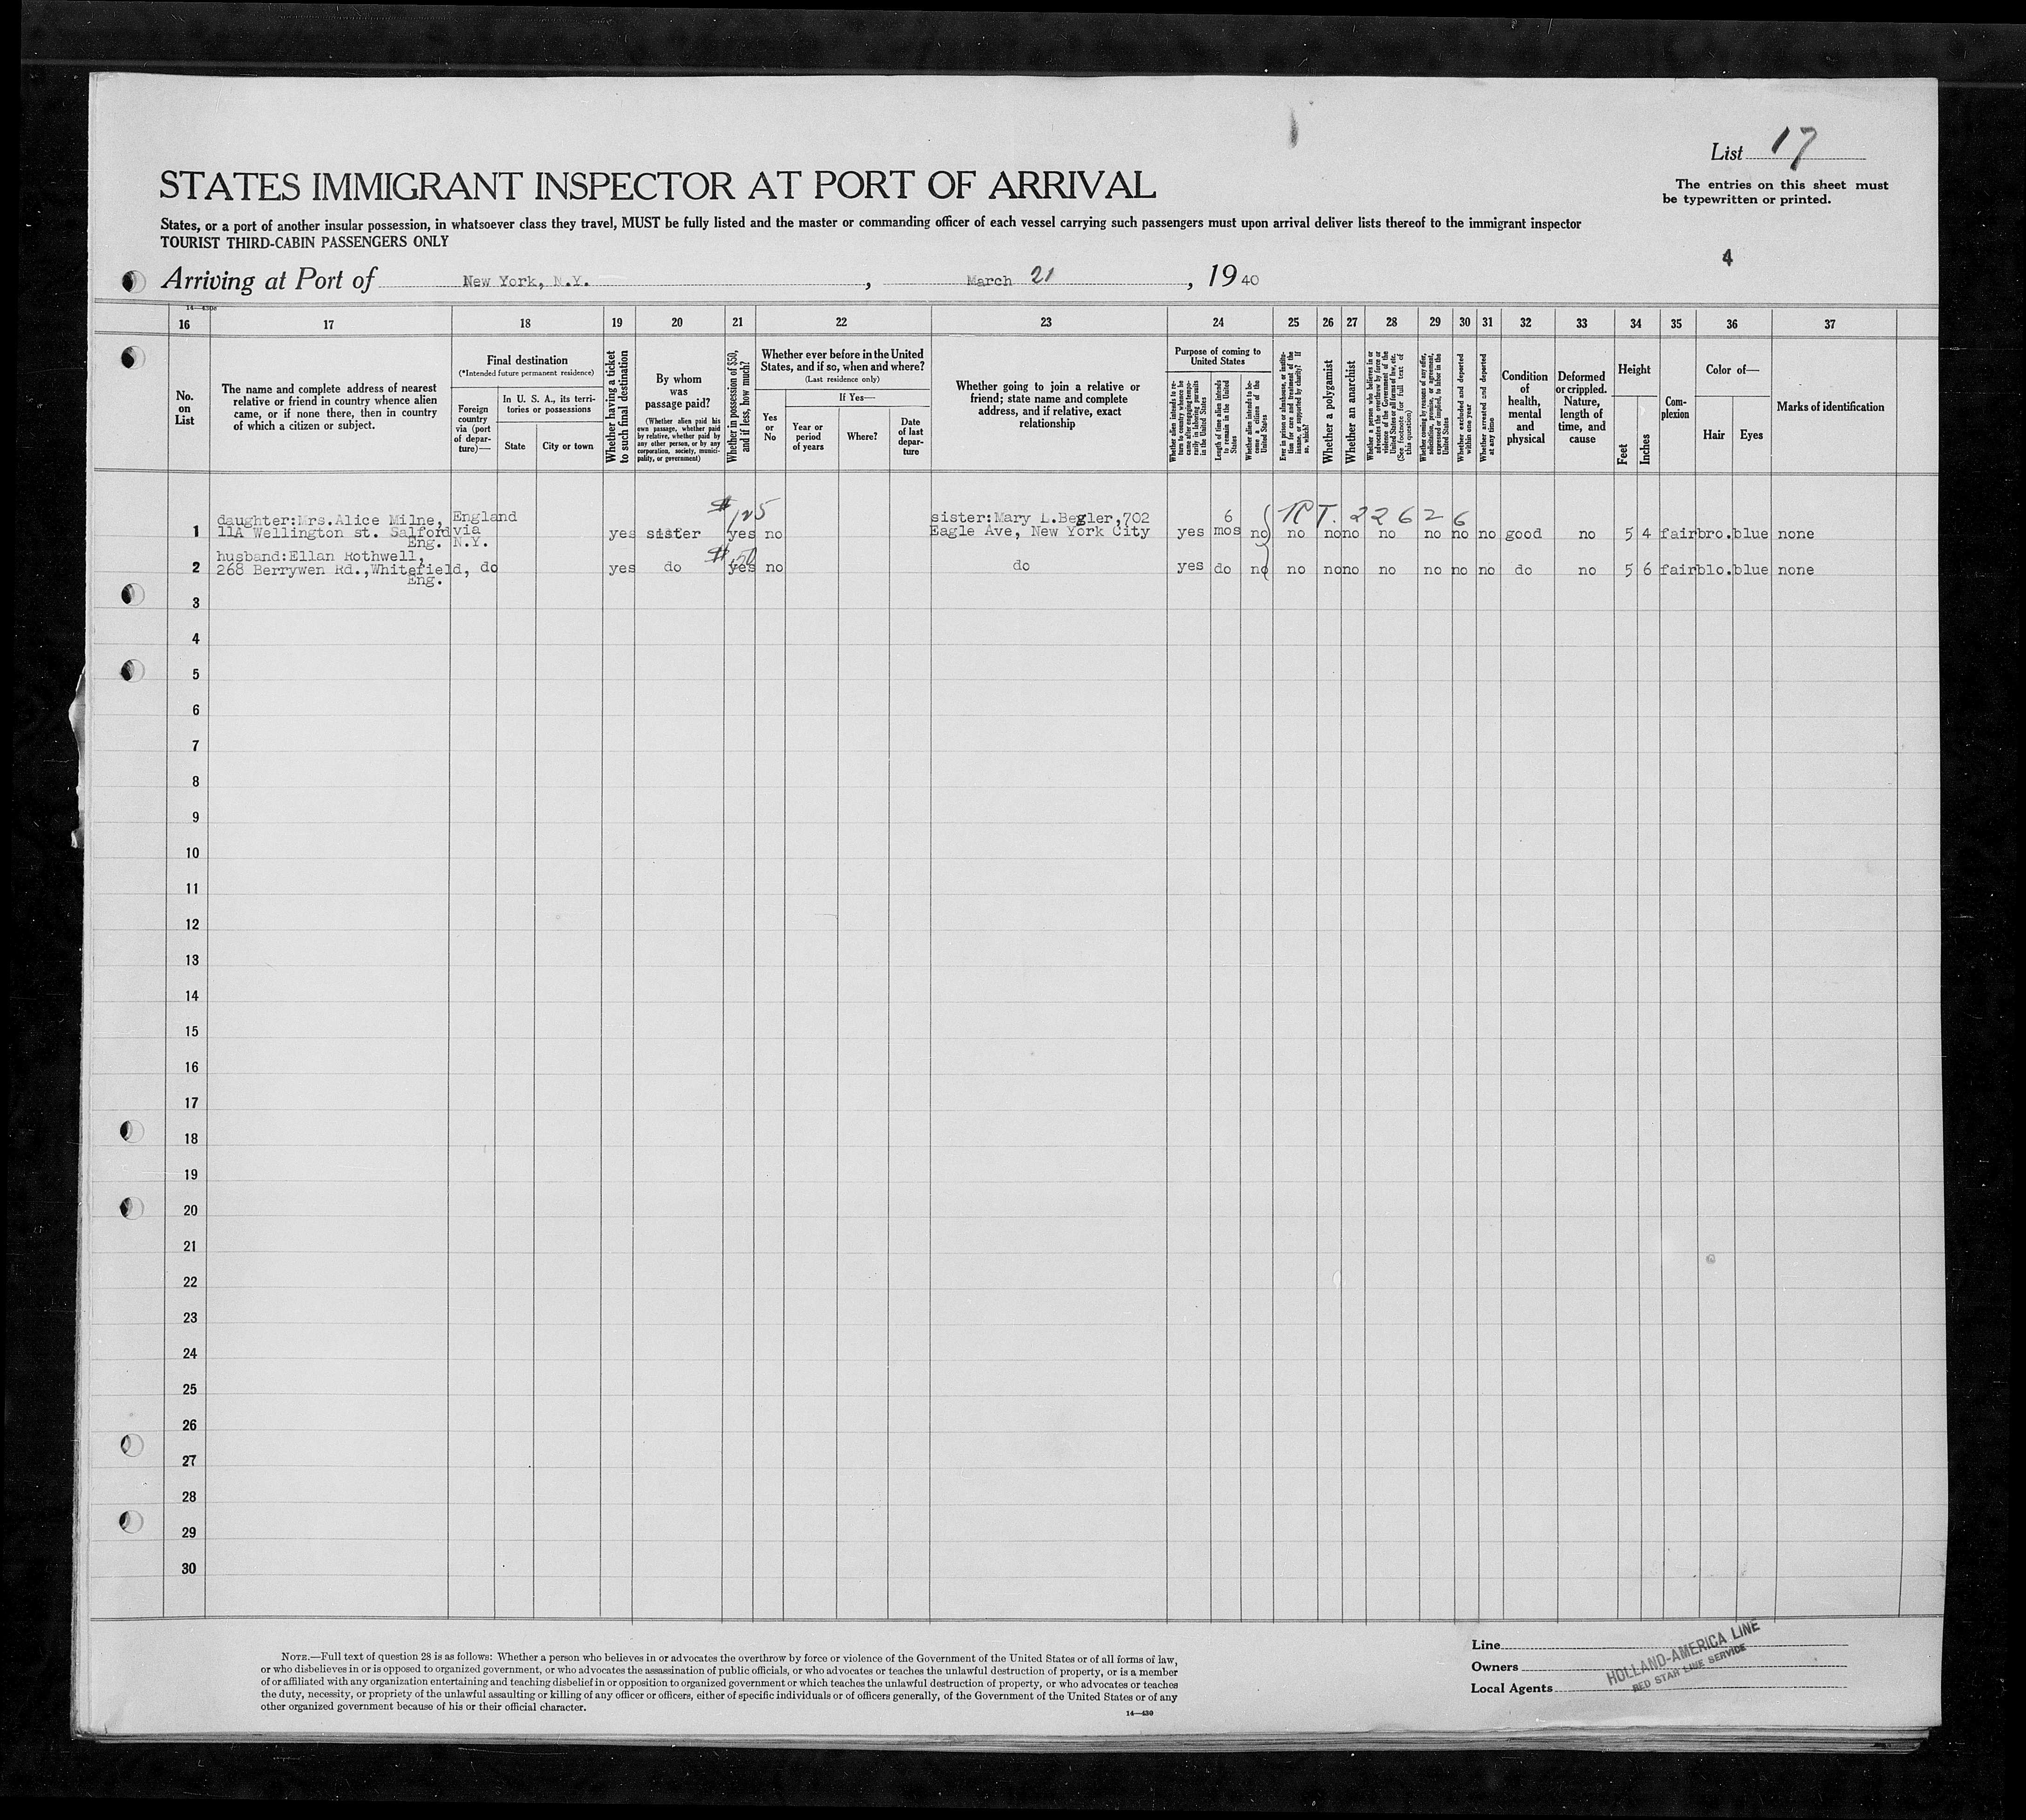 List 17
The entries on this sheet must
be typewritten or printed.
STATES IMMIGRANT INSPECTOR AT PORT OF ARRIVAL
States, or a port of another insular possession, in whatsoever class they travel, MUST be fully listed and the master or commanding officer of each vessel carrying such passengers must upon arrival deliver lists thereof to the immigrant inspector
TOURIST THIRD-CABIN PASSENGERS ONLY
4
Arriving at Port of New York, N.Y., March 21, 1940
16 17 18 19 20 21 22 23 24 25 26 27 28 29 30 31 32 33 34 35 36 37
No. on List
The name and complete address of nearest relative or friend in country whence alien came, or if none there, then in country of which a citizen or subject.
Final destination
(*Intended future permanent residence)
Foreign country via (port of departure)—
In U. S. A., its territories or possessions
State
City or town
Whether having a ticket to such final destination
By whom was passage paid?
(Whether alien paid his own passage, whether paid by relative, whether paid by any other person, or by any corporation, society, municipality, or government)
Whether in possession of $50, and if less, how much?
Whether ever before in the United States, and if so, when and where?
(Last residence only)
Yes or No
If Yes—
Year or period of years
Where?
Date of last departure
Whether going to join a relative or friend; state name and complete address, and if relative, exact relationship
Purpose of coming to United States
Whether alien intends to return to country whence he came after engaging temporarily in laboring pursuits in the United States
Length of time alien intends to remain in the United States
Whether alien intends to become a citizen of the United States
Ever in prison or almshouse, or institution for care and treatment of the insane, or supported by charity? If so, which?
Whether a polygamist
Whether an anarchist
Whether a person who believes in or advocates the overthrow by force or violence of the Government of the United States or all forms of law, etc. (See footnote for full text of this question)
Whether coming by reasons of any offer, solicitation, promise, or agreement, expressed or implied, to labor in the United States
Whether excluded and deported within one year
Whether arrested and deported at any time
Condition of health, mental and physical
Deformed or crippled. Nature, length of time, and cause
Height
Feet
Inches
Complexion
Color of—
Hair
Eyes
Marks of identification
daughter:Mrs.Alice Milne, England $125 sister:Mary L.Begler,702 6 RT. 22626
1 11A Wellington st. Salford via yes sister yes no Eagle Ave, New York City yes mos no no no no no no no no good no 5 4 fair bro. blue none
Eng. N.Y.
husband:Ellan Rothwell, $50
2 268 Berrywen Rd.,Whitefield, do yes do yes no do yes do no no no no no no no no do no 5 6 fair blo. blue none
Eng.
3
4
5
6
7
8
9
10
11
12
13
14
15
16
17
18
19
20
21
22
23
24
25
26
27
28
29
30
NOTE.—Full text of question 28 is as follows: Whether a person who believes in or advocates the overthrow by force or violence of the Government of the United States or of all forms of law,
or who disbelieves in or is opposed to organized government, or who advocates the assassination of public officials, or who advocates or teaches the unlawful destruction of property, or is a member
of or affiliated with any organization entertaining and teaching disbelief in or opposition to organized government or which teaches the unlawful destruction of property, or who advocates or teaches
the duty, necessity, or propriety of the unlawful assaulting or killing of any officer or officers, either of specific individuals or of officers generally, of the Government of the United States or of any
other organized government because of his or their official character.
14—430
Line
Owners
Local Agents
HOLLAND-AMERICA LINE
RED STAR LINE SERVICE